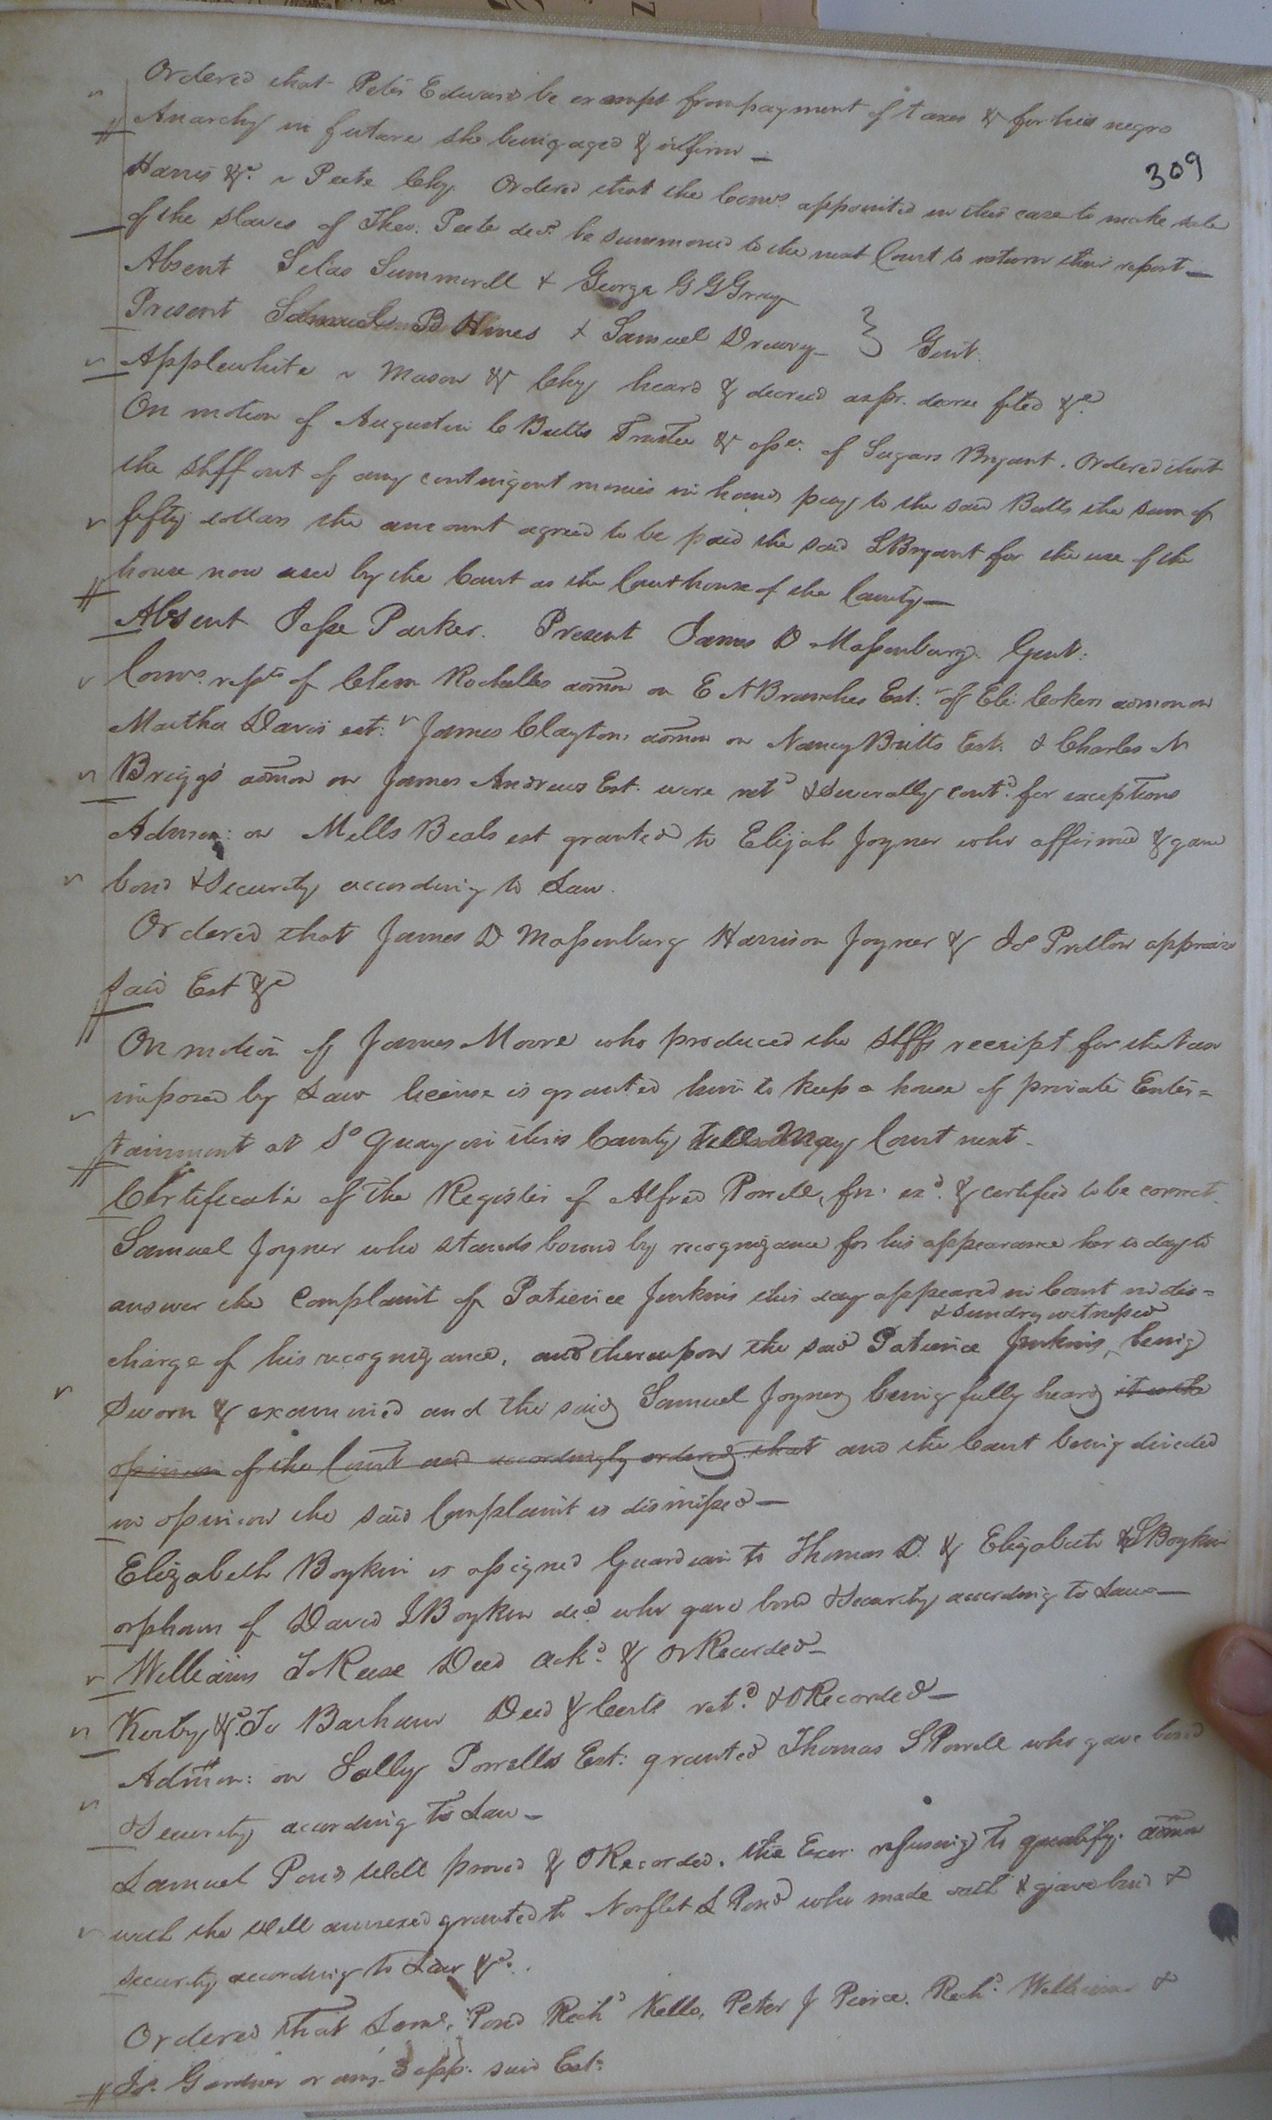 309
Ordered that Peter Edwards be exempt from payment of taxes &c for his negro
Anarchy in future she being aged & infirm —
Harris &c. v Peete Chy. Ordered that the Comrs. appointed in this case to make sale
of the slaves of Thos. Peete decd. be summoned to the next Court to return their report —
Absent Silas Summerell & George G G Gray
Present Samuel B Hines & Samuel Drewry — } Gent.
Applewhite v Mason &c Chy heard & decreed as pr. decree filed &c.
On motion of Augustin C Butts Trustee &c of Sugars Bryant. Ordered that
the Shff out of any contingent monies in hand pay to the said Butts the sum of
fifty dollars the amount agreed to be paid the said S Bryant for the use of the
house now used by the Court as the Courthouse of the County —
Absent Jesse Parker. Present James D Massenburg Gent:
Comrs. repts of Clem Rochelles admon on E A Branches Est: of Eli Cokers admon on
Martha Davis est: James Clayton, admon on Nancy Britts Est. & Charles N
Briggs admon on James Andrews Est. were retd & severally contd. for exceptions
Admon: on Mills Beals est granted to Elijah Joyner who affirmed & gave
bond & Security according to Law.
Ordered that James D Massenburg Harrison Joyner & Js Pretlow appraise
said Est &c
On motion of James Moore who produced the Shffs receipt for the tax
imposed by Law license is granted him to keep a house of private Enter=
tainment at So Quay in this County till May Court next.
Certificate of the Register of Alfred Powell, fn. exd. & certified to be correct.
Samuel Joyner who stands bound by recognizance for his appearance here to day to
answer the Complaint of Patience Jenkins this day appeared in Court in dis=
& sundry witnesses
charge of his recognizance, and thereupon the said Patience Jenkins, being
sworn & examined and the said Samuel Joyner being fully heard it is the
opinion of the Court and accordingly ordered that and the Court being divided
in opinion the said Complaint is dismissed —
Elizabeth Boykin is assigned Guardian to Thomas D. & Elizabeth S Boykin
orphans of David J Boykin decd who gave bond & Security according to Law —
Williams To Reese Deed ackd. & Or Recorded —
Kirby &c. To Barham Deed & Certs retd. & O Recorded —
Admon: on Sally Porrells Est: granted Thomas S Porrell who gave bond
& Security according to Law —
Samuel Ponds Will proved & O Recorded. the Exor. refusing to qualify. admon
with the Will annexed granted to Norflet S Pond who made oath & gave bond &
security according to Law &c.
Ordered That Saml. Pond Richd Kello, Peter J Peirce. Richd. Williams &
Js. Gardner or any. 3 app. said Est: